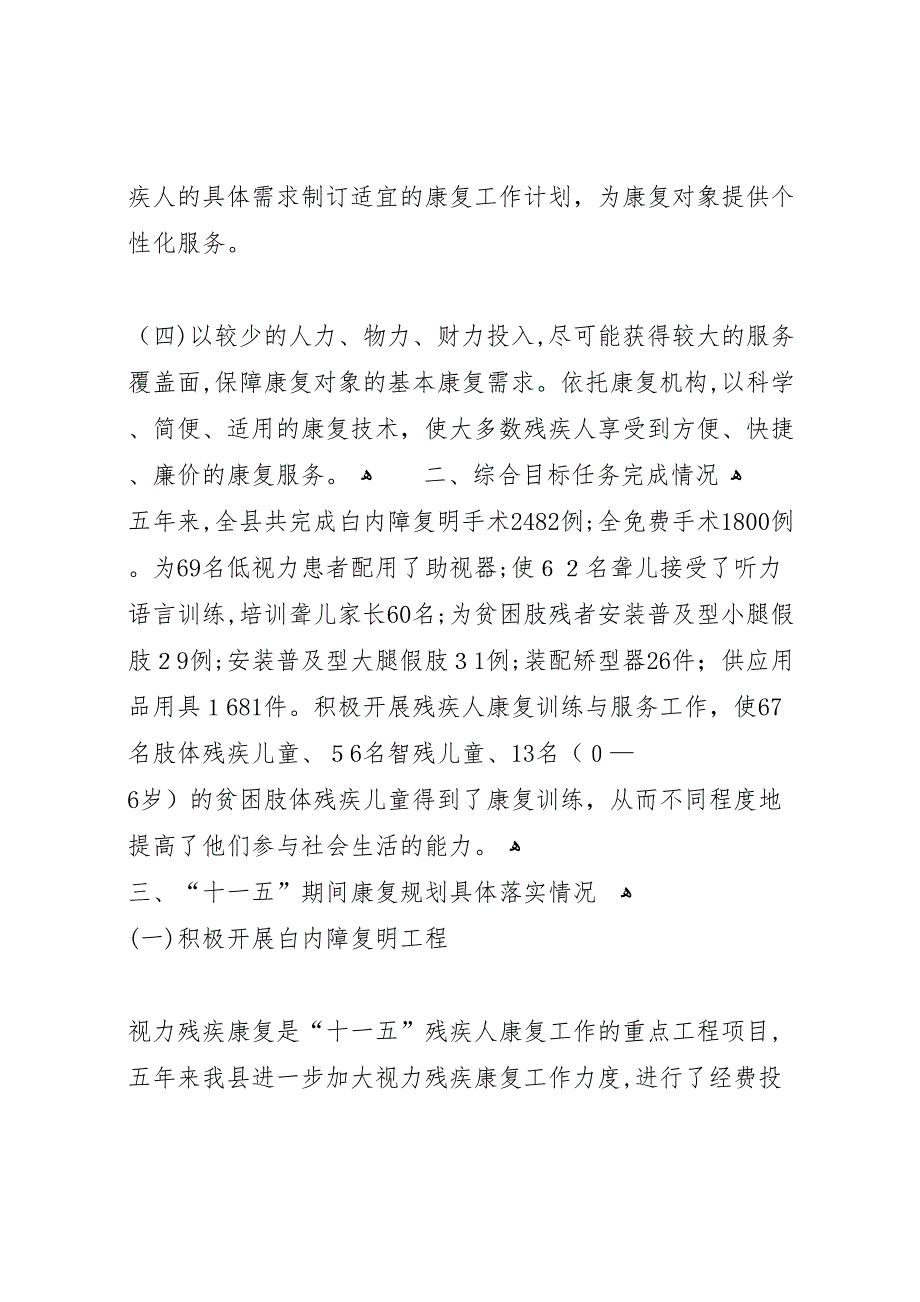 疾人的具体需求制订适宜的康复工作计划，为康复对象提供个
性化服务。
（四)以较少的人力、物力、财力投入,尽可能获得较大的服务
覆盖面,保障康复对象的基本康复需求。依托康复机构,以科学
、简便、适用的康复技术，使大多数残疾人享受到方便、快捷
、廉价的康复服务。 ﻫ 二、综合目标任务完成情况 ﻫ
五年来,全县共完成白内障复明手术2482例;全免费手术1800例
。为69名低视力患者配用了助视器;使６２名聋儿接受了听力
语言训练,培训聋儿家长60名;为贫困肢残者安装普及型小腿假
肢２9例;安装普及型大腿假肢３1例;装配矫型器26件；供应用
品用具１681件。积极开展残疾人康复训练与服务工作，使67
名肢体残疾儿童、５6名智残儿童、13名（０—
6岁）的贫困肢体残疾儿童得到了康复训练，从而不同程度地
提高了他们参与社会生活的能力。 ﻫ
三、“十一五”期间康复规划具体落实情况 ﻫ
(一)积极开展白内障复明工程
视力残疾康复是“十一五”残疾人康复工作的重点工程项目,
五年来我县进一步加大视力残疾康复工作力度,进行了经费投